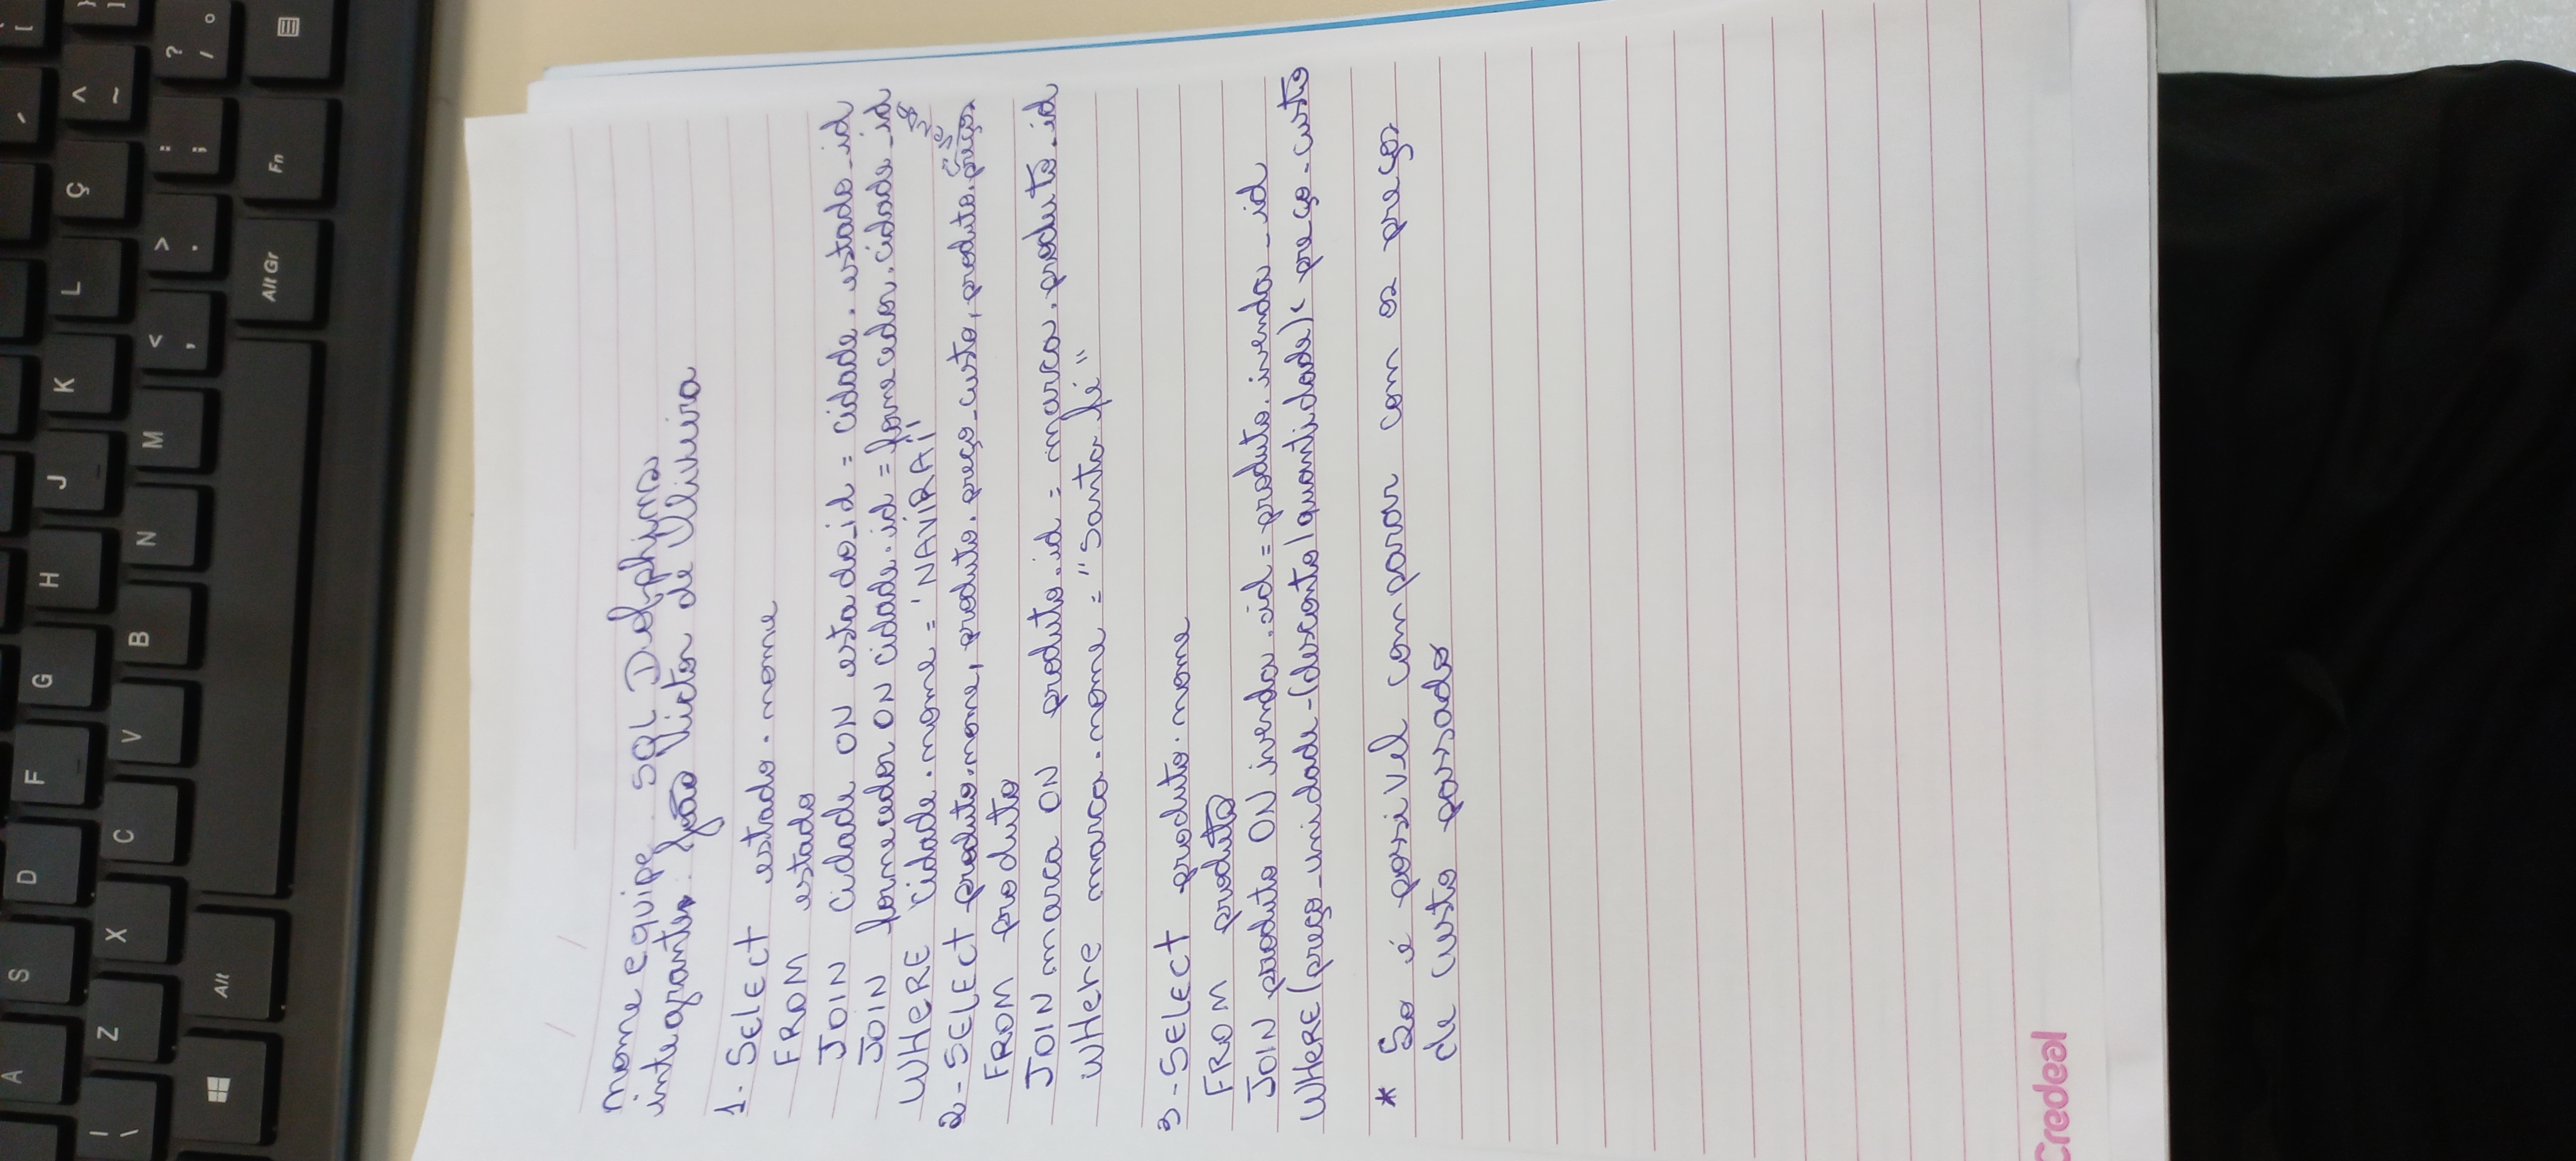 A S D F G H J K L Ç ^ ~ [
| \ Z X C V B N M < , > . : ; ? / ° } ]
Alt Alt Gr Fn
nome equipe. SQL Dolphins
integrantes: João Victor de Oliveira
1. SElEct estado.nome
FROM estado
JOIN cidade ON estado_id = cidade.estado_id
JOIN fornecedor ON cidade.id = fornecedor.cidade_id
WHERE cidade.nome = 'NAVIRAÍ'
2-SELEct produto.nome, produto.preço_custo, produto.preços venda
FROM produto
JOIN marca ON produto.id = marca.produto.id
WHere marca.nome = "Santa fé"
3-SELEct produto.nome
FROM produto
JOIN produto ON ivenda.id = produto.ivenda_id
WHERE (preço_unidade-(desconto/quantidade)< preço_custo
* So é possivel comparar com os preços
de custo passado
Credeal